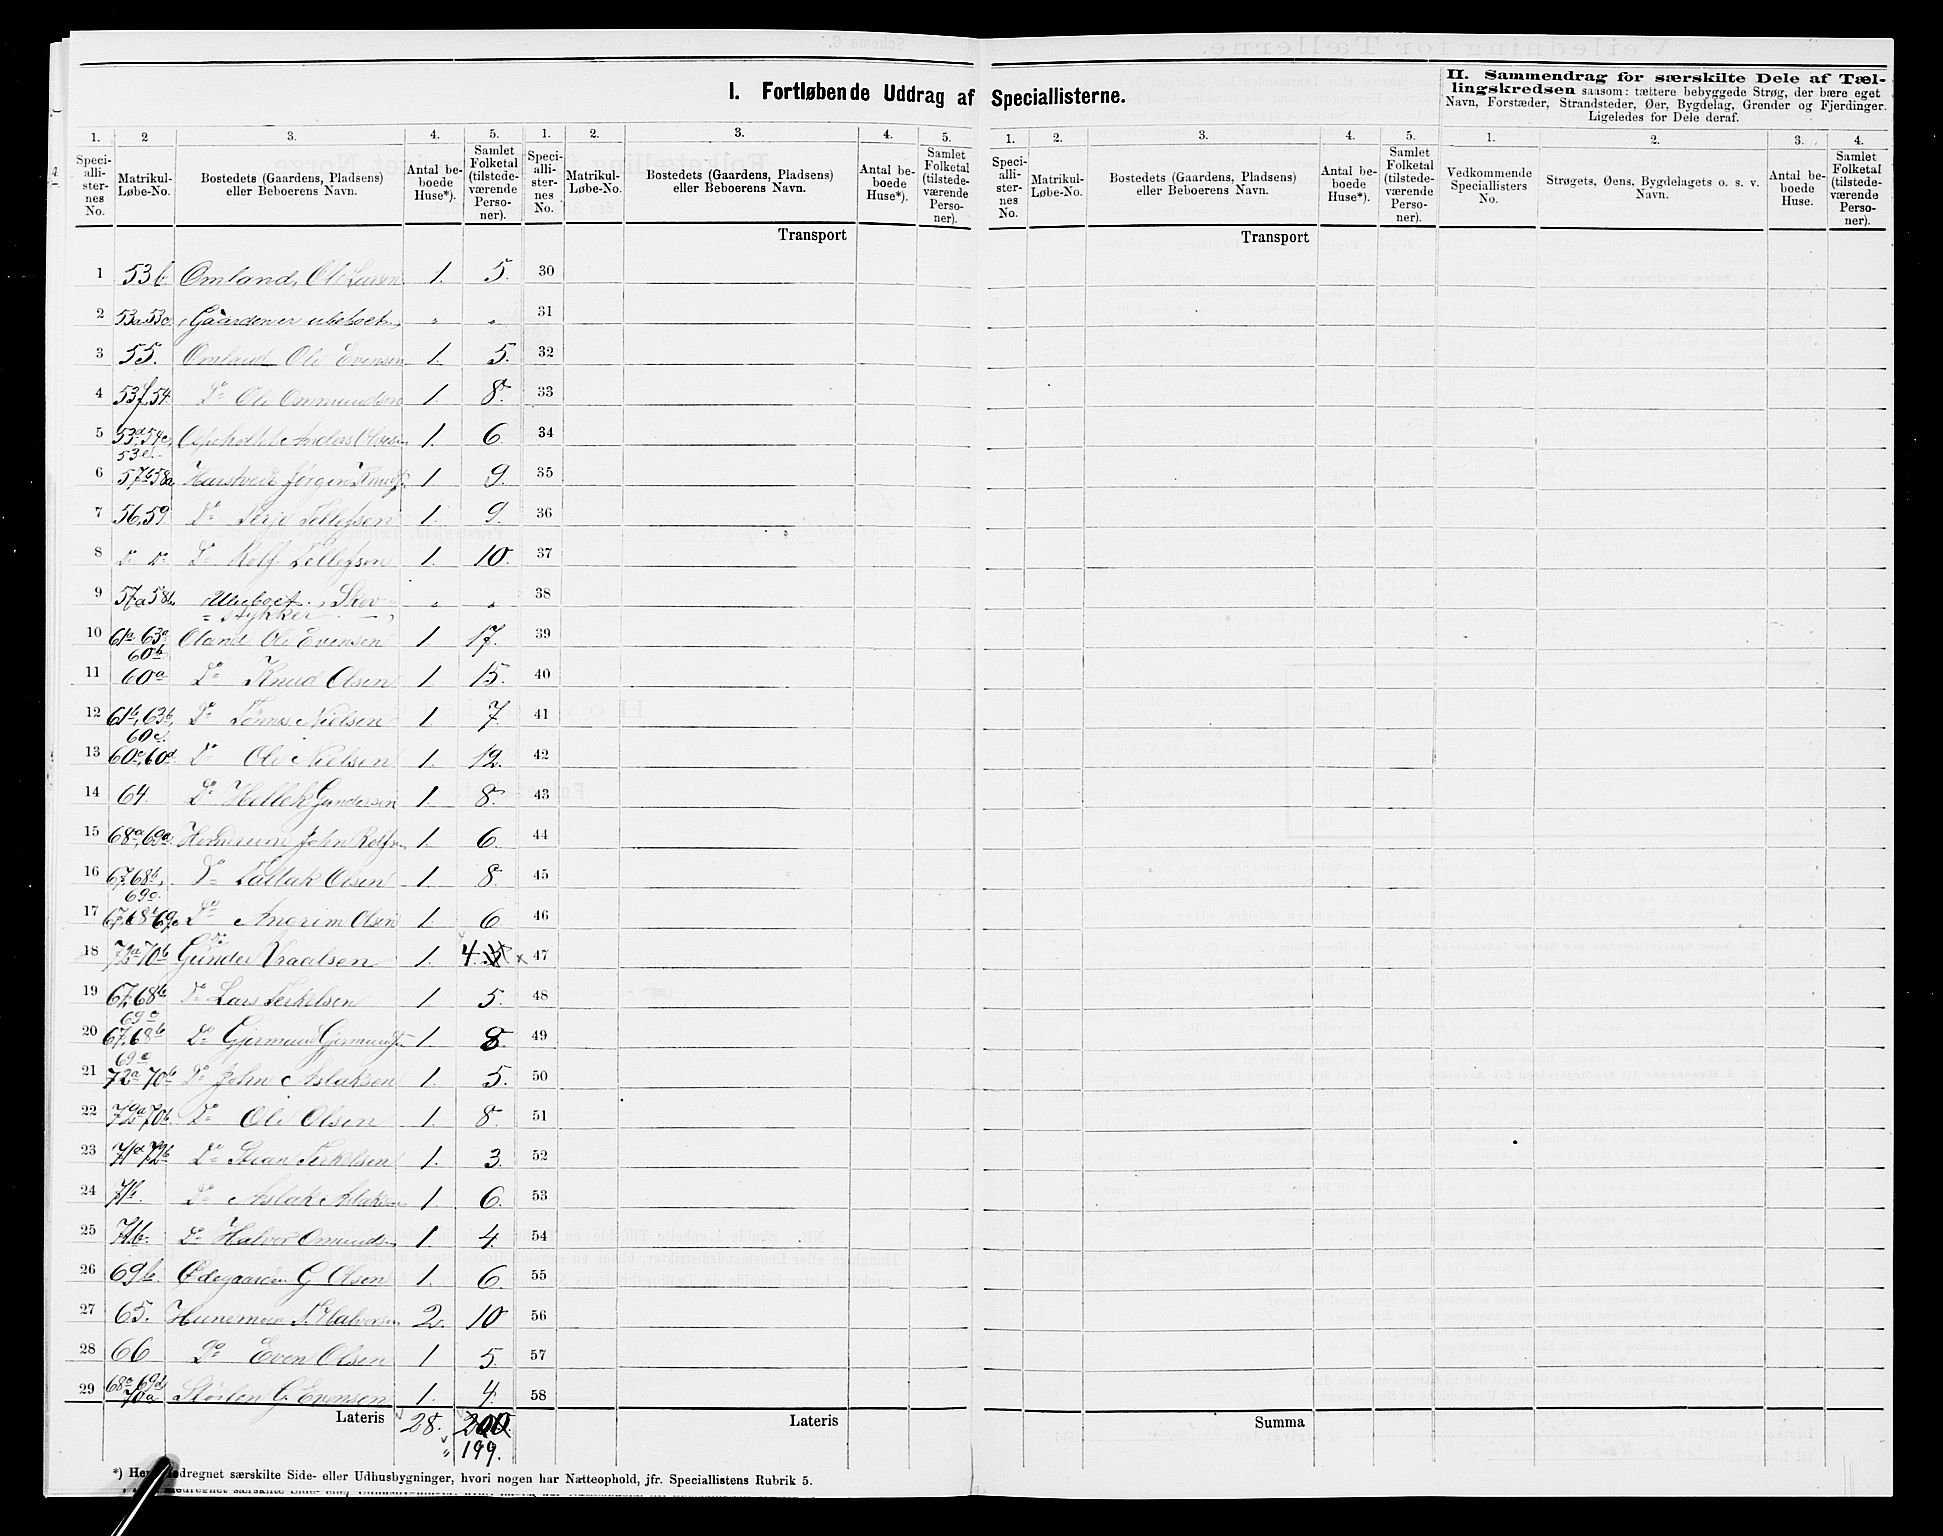 I. Fortløbende Uddrag af Speciallisterne.
II. Sammendrag for særskilte Dele af Tællingskredsen saasom: tættere bebyggede Strøg, der bære eget
Navn, Forstæder, Strandsteder, Øer, Bygdelag, Grender og Fjerdinger.
Ligeledes for Dele deraf.
1. 2 3. 4. 5. 1. 2. 3. 4. 5. 1. 2. 3. 4. 5. 1. 2. 3. 4.
Speciallisternes No. Matrikul-Løbe-No. Bostedets (Gaardens, Pladsens) eller Beboerens Navn. Antal beboede Huse*). Samlet Folketal (tilstedeværende Personer).
Speciallisternes No. Matrikul-Løbe-No. Bostedets (Gaardens, Pladsens) eller Beboerens Navn. Antal beboede Huse*). Samlet Folketal (tilstedeværende Personer).
Speciallisternes No. Matrikul-Løbe-No. Bostedets (Gaardens, Pladsens) eller Beboerens Navn. Antal beboede Huse*). Samlet Folketal (tilstedeværende Personer).
Vedkommende Speciallisters No. Strøgets, Øens, Bygdelagets o. s. v. Navn. Antal beboede Huse. Samlet Folketal (tilstedeværende Personer).
Transport Transport
1 53b Omland, Ole Larsen 1. 5. 30
2 53a 53c Gaarden er ubeboet " " 31
3 55. Omland Ole Evensen 1. 5. 32
4 53f, 54 Do Ole Ommundsen 1. 8. 33
5 53d, 54c, 53e. Anders Olsen 1. 6. 34
6 57b 58a Harstveit Jørgen 1 9. 35
7 56, 59 Do Terje Tellefsen 1. 9. 36
8 Do Do Do Rolf Tellefsen 1. 10. 37
9 57a 58b Ubeboet. Skovstykker " " 38
10 61a 63a 60b Oland Ole Evensen 1 17. 39
11 60a Do Knud Olsen 1 15. 40
12 61b, 63b, 60c. Do Tomas Nielsen 1 7. 41
13 60c, 60d Do Ole Nielsen 1. 12. 42
14 64. Do Hellek Gundersen 1. 8. 43
15 68a, 69a John Rolfsen 1. 6. 44
16 67, 68b, 69c. Do Tallak Olsen 1. 8. 45
17 67, 68b 69c Do Angrim Olsen 1. 6 46
18 72a 70b Do Gunder Vraalsen 1. 4. 47
19 67, 68b 69c Do Lars Terkelsen 1 5. 48
20 67, 68b 69c Do Gjermund 1. 8. 49
21 72a 70b Do John Aslaksen 1. 5. 50
22 72a 70b Do Ole Olsen 1 8. 51
23 71a 72b Do Terkelsen 1. 3. 52
24 71b. Do Aslak Aslaksen 1 6. 53
25 71b. Do Halvor Omunds 1. 4. 54
26 69b. Ødegaarden G Olsen 1. 6. 55
27 65. Halvorsen 2. 10 56
28 66 Do Even Olsen 1 5. 57
29 68a 69d 70a G. Evensen 1. 4. 58
Lateris 28. 200. Lateris Summa
" 199.
*) Her medregnet særskilte Side- eller Udhusbygninger, hvori nogen har Natteophold, jfr. Speciallistens Rubrik 5.